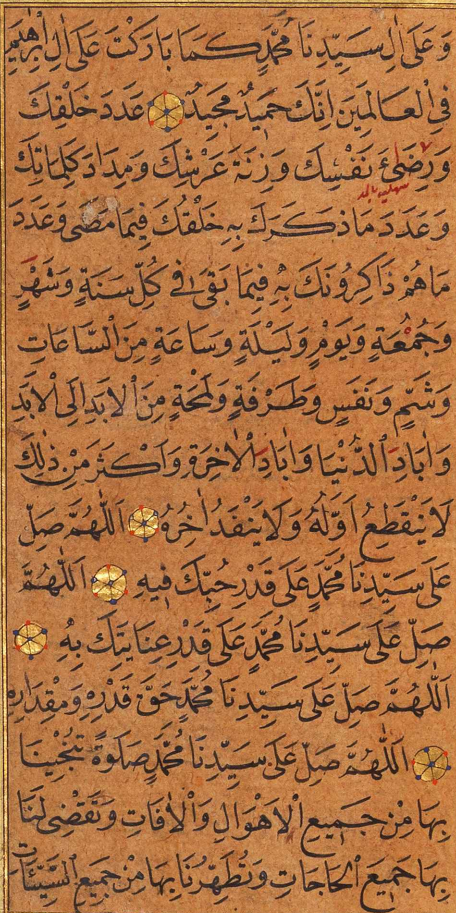 وَعَلَى اٰلِ سَيِّدِنَا مُحَمَّدٍ كَمَا بَارَكْتَ عَلَى اٰلِ اِبْرٰهِيمَ
فِي الْعَالَمِينَ اِنَّكَ حَمِيدٌ مَجِيدٌ عَدَدَ خَلْقِكَ
وَرِضٰىءَ نَفْسِكَ وَزِنَةَ عَرْشِكَ وَمِدَادَ كَلِمَاتِكَ
وَعَدَدَ مَا ذَكَرَكَ بِهِ خَلْقُكَ فِيمَا مَضٰى وَعَدَدَ
مَا هُمْ ذَاكِرُونَكَ بِهِ فِيمَا بَقِيَ فِي كُلِّ سَنَةٍ وَشَهْرٍ
وَجُمْعَةٍ وَيَوْمٍ وَلَيْلَةٍ وَسَاعَةٍ مِنَ السَّاعَاتِ
وَشَمٍّ وَنَفَسٍ وَطَرْفَةٍ وَلَمْحَةٍ مِنَ الْاَبَدِ اِلَى الْاَبَدِ
وَاٰبَادِ الدُّنْيَا وَاٰبَادِ الْاٰخِرَةِ وَاَكْثَرَ مِنْ ذٰلِكَ
لَا يَنْقَطِعُ اَوَّلُهُ وَلَا يَنْفَدُ اٰخِرُهُ اَللّٰهُمَّ صَلِّ
عَلَى سَيِّدِنَا مُحَمَّدٍ عَلَى قَدْرِ حُبِّكَ فِيهِ اَللّٰهُمَّ
صَلِّ عَلَى سَيِّدِنَا مُحَمَّدٍ عَلَى قَدْرِ عِنَايَتِكَ بِهِ
اَللّٰهُمَّ صَلِّ عَلَى سَيِّدِنَا مُحَمَّدٍ حَقَّ قَدْرِهِ وَمِقْدَارِهِ
اَللّٰهُمَّ صَلِّ عَلَى سَيِّدِنَا مُحَمَّدٍ صَلٰوةً تُنْجِينَا
بِهَا مِنْ جَمِيعِ الْاَهْوَالِ وَالْاٰفَاتِ وَتَقْضِي لَنَا
بِهَا جَمِيعَ الْحَاجَاتِ وَتُطَهِّرُنَا بِهَا مِنْ جَمِيعِ السَّيِّئَاتِ